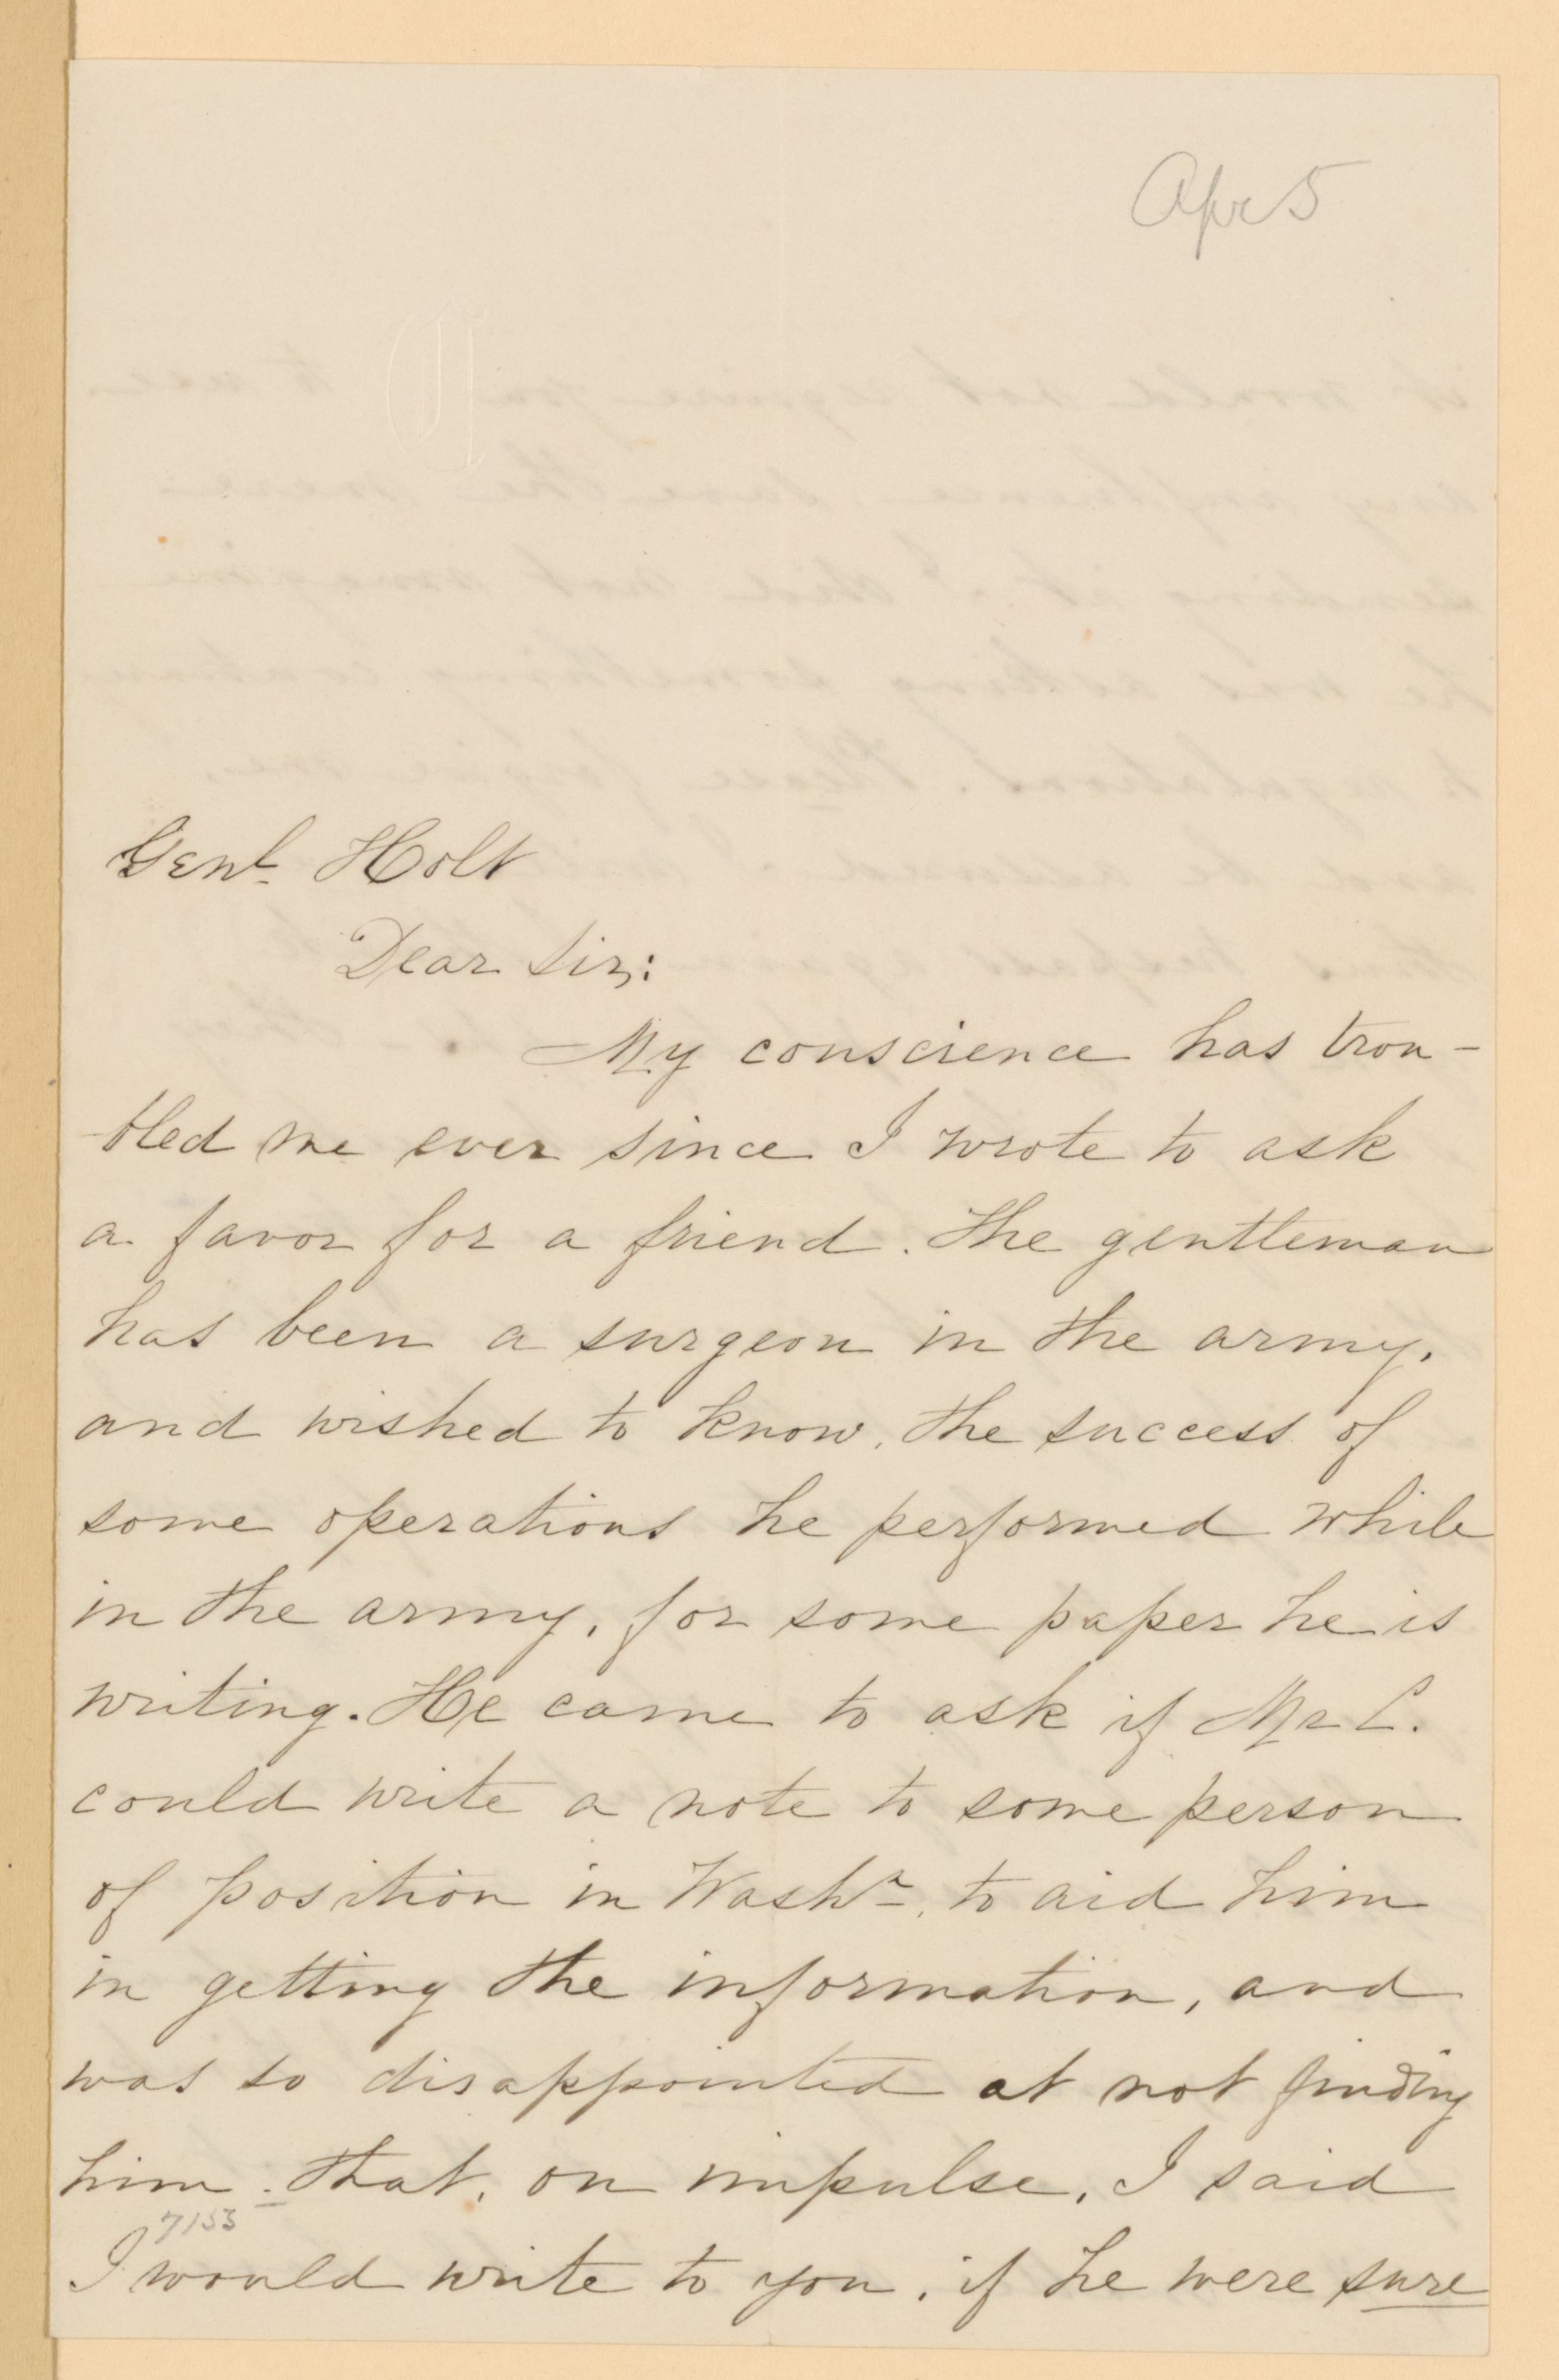 Apr 5
Genl. Holt
Dear Sir;:
My conscience has trou-
-bled me ever since I wrote to ask
a favor for a friend. The gentleman
has been a surgeon in the army,
and wished to know, the success of
some operations he performed while
in the army, for some paper he is
writing. He came to ask if Mr L.
could write a note to some person
of position in Washn, to aid him
in getting the information, and
was so disappointed at not finding
him. that, on impulse, I said
7153
I would write to you, if he were sure